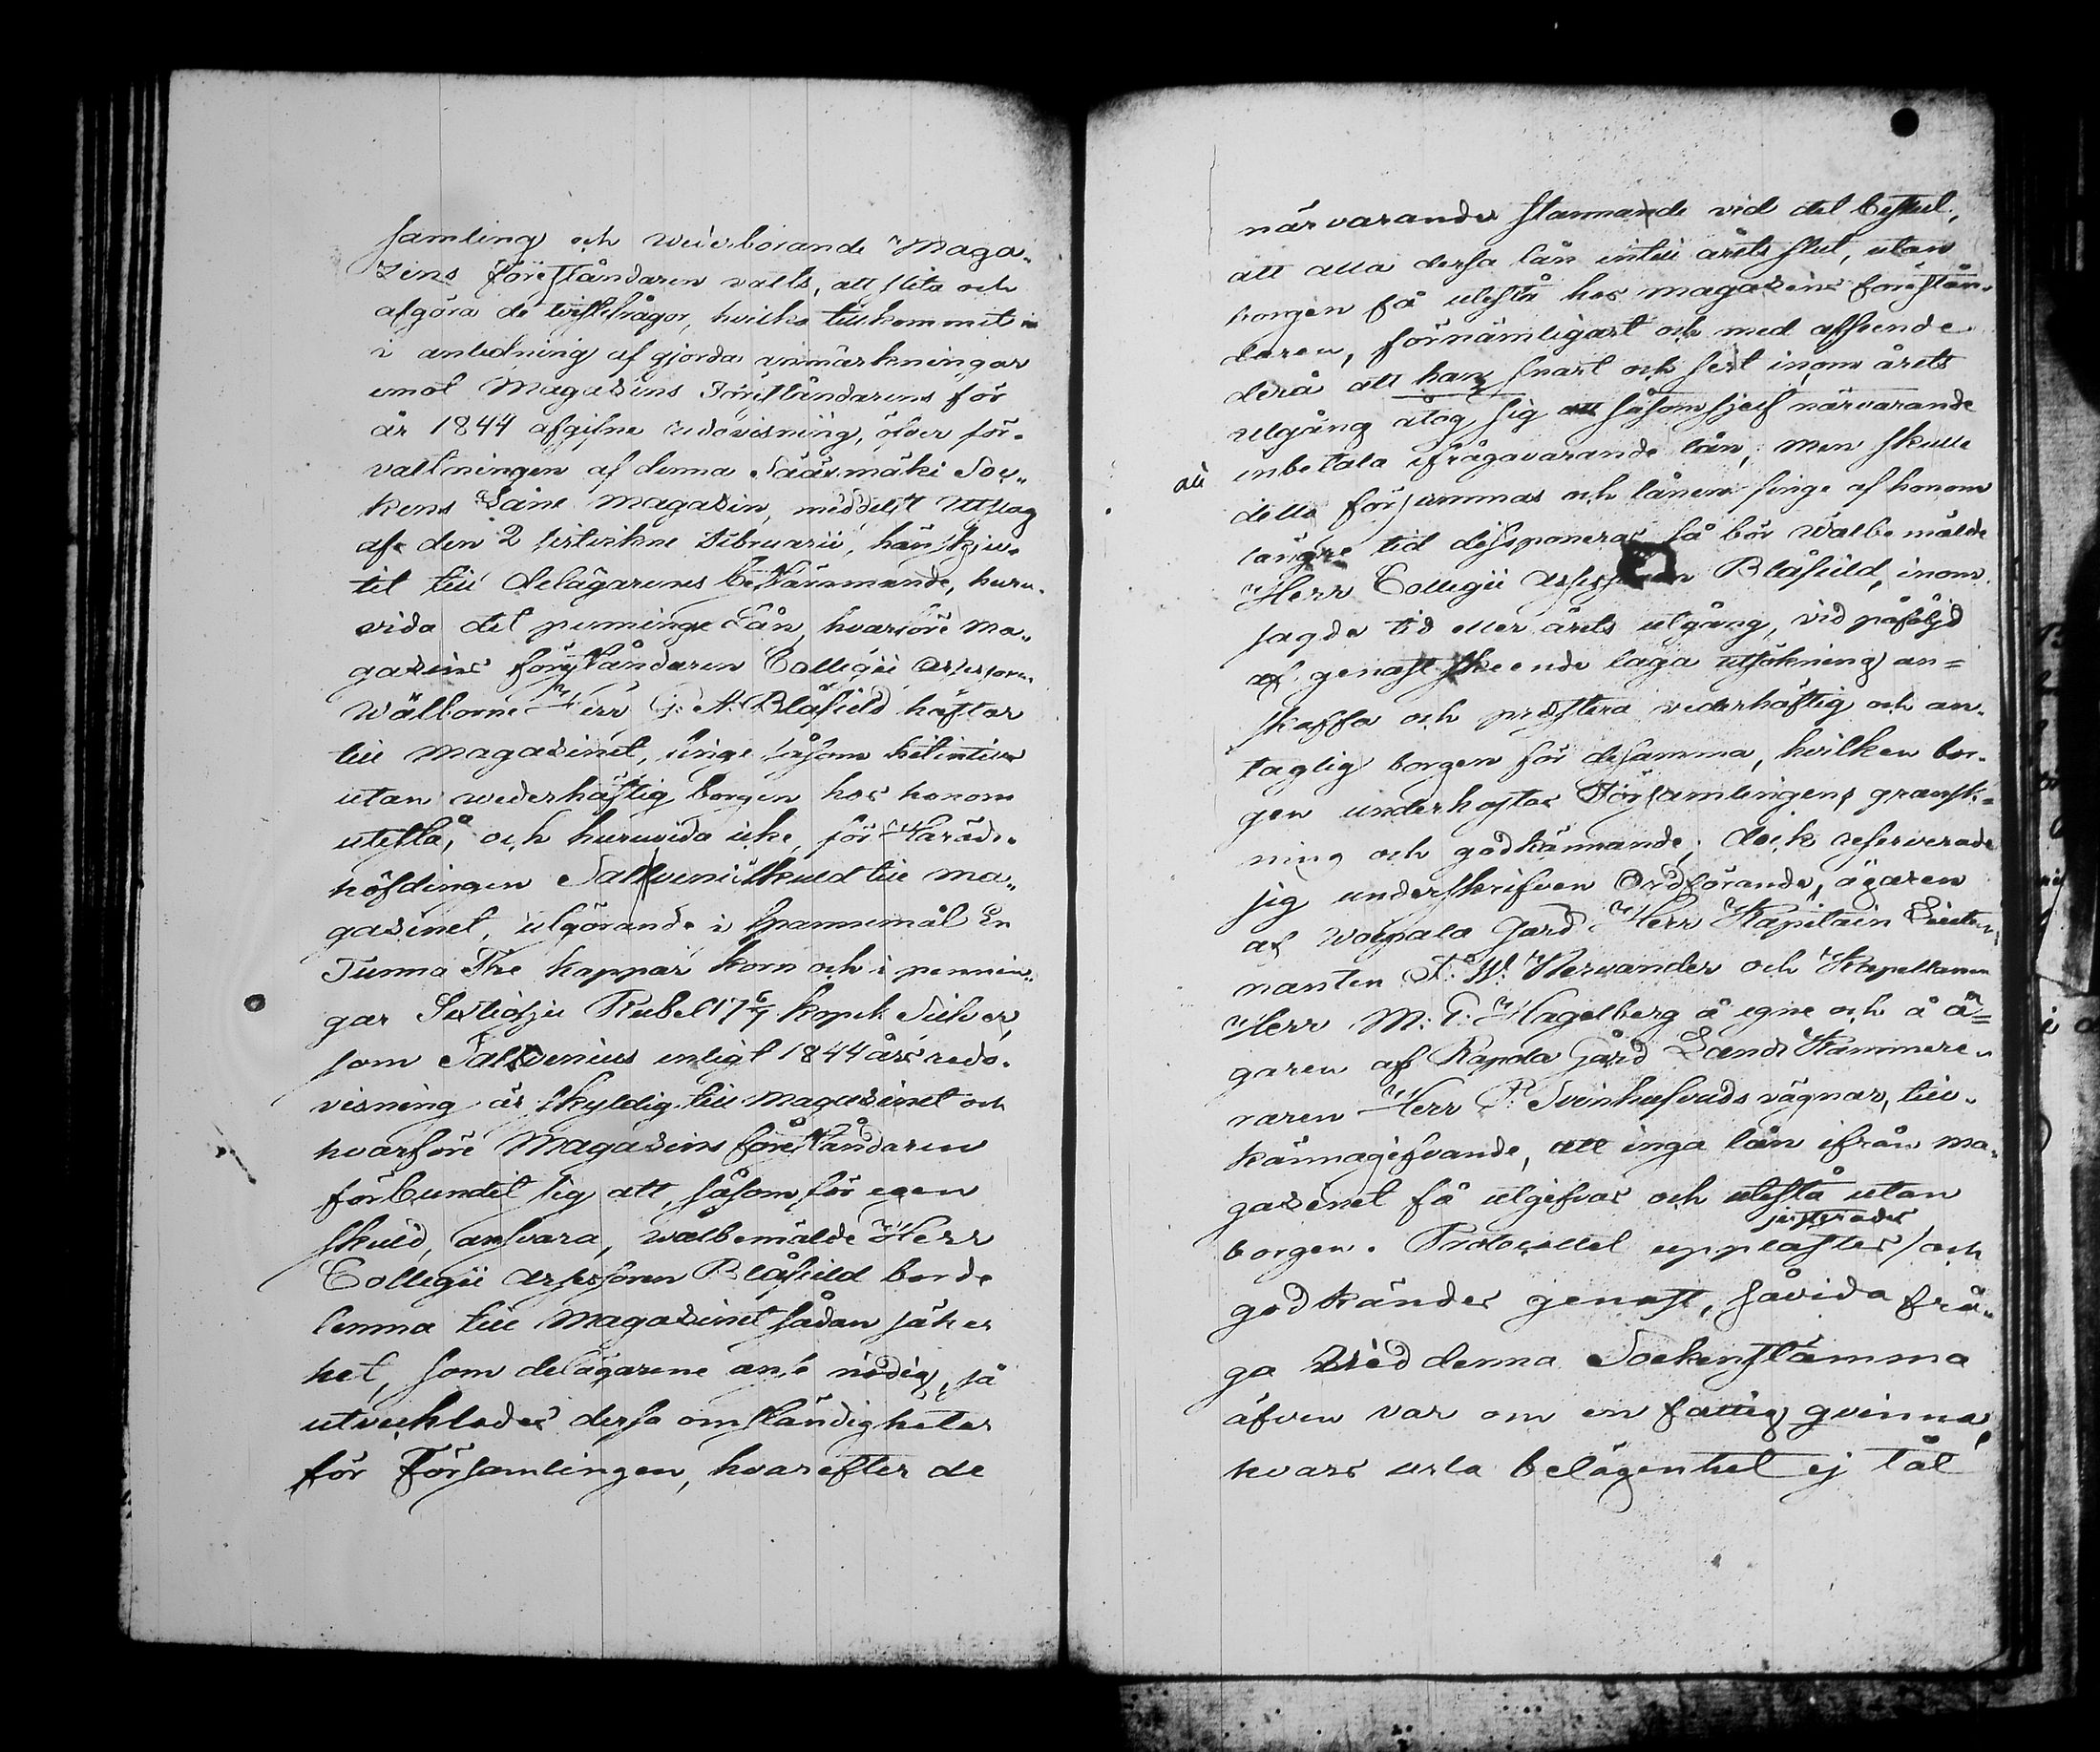 samling och wederborande Maga„
zins föreståndaren valts, att slita och
afgöra de tvistefrågor, hvilka tillkommit
i anledning af gjorda anmärkningar
emot Magazins Föreståndarens för
år 1844 afgifne redovisning, öfver för„
valtningen af denna Sääxmäki Soc„
kens Låne Magazin, meddelst Utslag
af den 2 sistlidne Februarii, hänskju„
tit till delägarenes bestämmande, huru„
vida det penninge Lån, hvarföre Ma„
gazins föreståndaren Collegii Assessorn
Wälborne Herr G: A: Blåfield häftar
till Magazinet, finge såsom hitintills
utan wederhäftig borgen hos honom
utestå, och huruvida icke, för Härads„
höfdingen Sallvenii skuld till Ma„
gazinet, utgörande i Spannemål En
Tunna Tre kappar korn och i pennin„
gar Sextiosju Rubel 17 6/7 kopek Silfver,
som Sallvenius enligt 1844 års redo„
visning är skyldig till Magazinet och
hvarföre Magazins föreståndaren
förbundit sig att, såsom för egen
skuld, ansvara, wälbemälde Herr
Collegii Assessoren Blåfield borde
lemna till Magazinet sådan säker
het, som delägarene anse nödig, så
utvecklades dessa omständigheter
för Församlingen, hvarefter de
närvarande stannande vid det beslut,
att alla dessa lån intill årets slut, utan
borgen få utestå hos magazins förestån„
daren, förnämligast och med afseende
derå att han snart och sist inom årets
utgång åtog sig såsom sjelf närvarande
inbetala ifrågavarande lån, men skulle
detta försummas och lånen finge af honom
längre tid disponeras så bör Wälbemälde
Herr Collegii Assessoren Blåfield, inom
sagde tid eller årets utgång, vid påföljd
af genast skeende laga utsökning an=
skaffa och prestera vederhäftig och an„
taglig borgen för desamma, hvilken bor„
gen underkastas Församlingens gransk=
ning och godkännande; dock reserverade
sig underskrifven Ordförande, ägaren
af Woipala Gård Herr Kapitain Lieute„
nanten A: W: Nervander och Kapellanen
Herr M: T: Hagelberg å egne och å Ä=
garen af Rapola Gård Lands Kammere„
raren Herr P: Svinhufvuds vägnar, till„
kännagifvande, att inga lån ifrån Ma„
gazinet få utgifvas och utestå utan
borgen. Protocollet upplästes, justerades och
godkändes genast, såvida frå„
ga Vid denna Sockenstämma
äfven var om en fattig qvinna,
hvars usla belägenhet ej tål